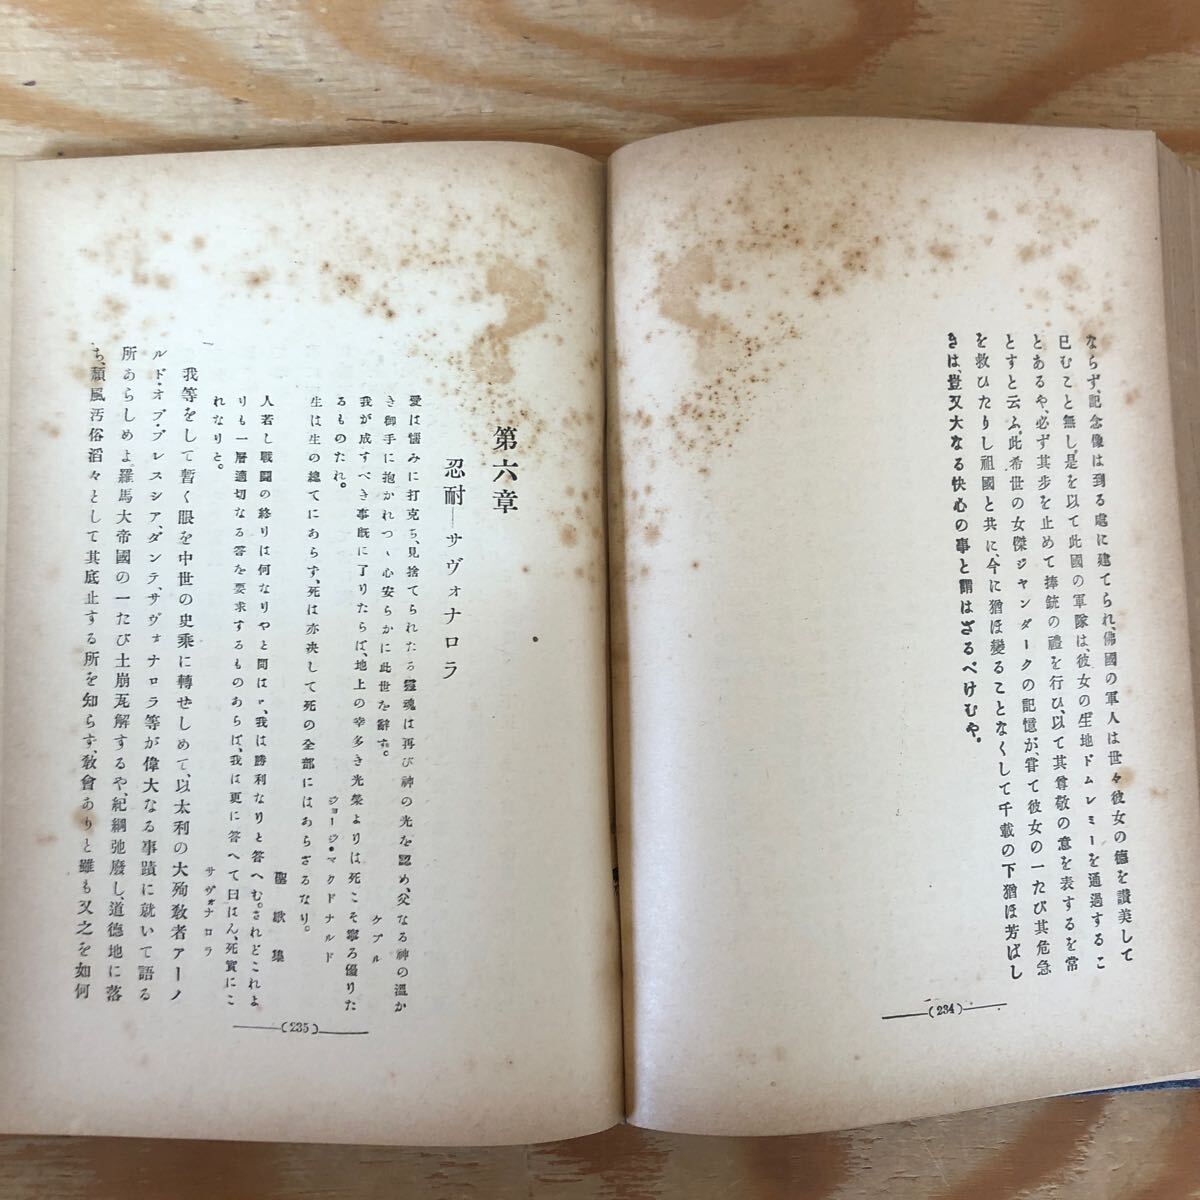 ならず、記念像は到る處に建てられ、佛國の軍人は世々彼女の德を讃美して
已むこと無し。是を以て此國の軍隊は、彼女の生地ドムレミーを通過するこ
とあるや、必ず其步を止めて捧銃の禮を行ひ、以て其尊敬の意を表するを常
とすと云ふ。此希世の女傑ジャンダークの記憶が、嘗て彼女の一たび其危急
を救ひたりし祖國と共に、今に猶ほ變ることなくして千載の下猶ほ芳ばし
きは、豈又大なる快心の事と謂はざるべけむや。
(234)
第六章
忍耐―サヴォナロラ
愛は惱みに打克ち、見捨てられたる靈魂は再び神の光を認め、父なる神の溫か
き御手に抱かれつゝ心安らかに此世を辭す。
ケブル
我が成すべき事旣に了りたらば、地上の幸多き光榮よりは死こそ寧ろ優りた
るものたれ。
ジョージ・マクドナルド
生は生の總てにあらず、死は亦決して死の全部にはあらざるなり。
聖歌集
人若し戰鬪の終りは何なりやと問はゞ、我は勝利なりと答へむ。されどこれよ
りも一層適切なる答を要求するものあらば、我は更に答へて曰はん、死實にこ
れなりと。
サヴォナロラ
我等をして暫く眼を中世の史乘に轉せしめて、以太利の大殉敎者アーノ
ルド・オブ・ブレスシア、ダンテ、サヴォナロラ等が偉大なる事蹟に就いて語る
所あらしめよ。羅馬大帝國の一たび土崩瓦解するや、紀綱弛廢し、道德地に落
ち、頽風汚俗滔々として其底止する所を知らず、敎會ありと雖も又之を如何
(235)